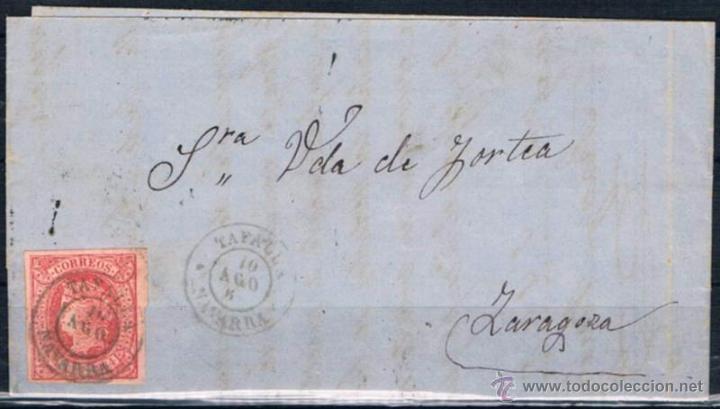 Sra Vda de Zortea
Zaragoza
TAFALLA
10
AGO
NAVARRA
CORREOS
AGO
NAVARRA
© www.todocoleccion.net